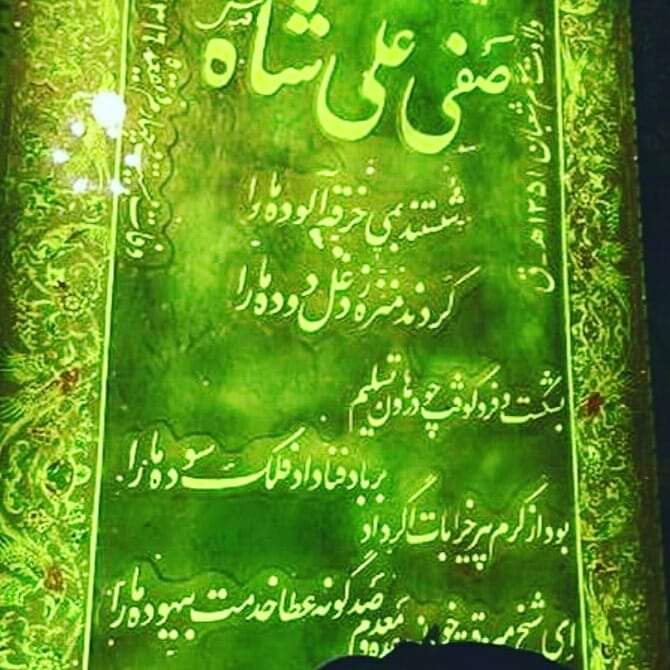 صفی علی شاه
ولادت سوم شعبان ۱۲۵۱ هـ ـ ق
شستند بمی خرقه آلوده ما را
کردند منزه ز دغل دوده ما را
بگشت و فرو کوفت چو در هاون تسلیم
بر باد فنا داد فلک سوده ما را
بود از کرم پیر خرابات اگر داد
صد گونه عطا خدمت بیهوده ما را
ای شیخ